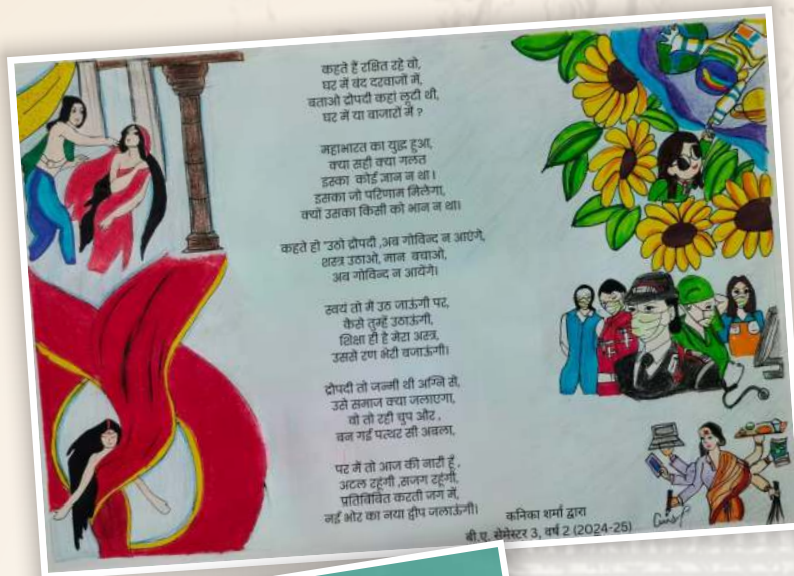 कहते हैं रक्षित रहे वो,
घर में बंद दरवाजों में,
बताओ द्रौपदी कहां लूटी थी,
घर में या बाजारों में ?
महाभारत का युद्ध हुआ,
क्या सही क्या गलत
इसका कोई ज्ञान न था।
इसका जो परिणाम मिलेगा,
क्यों उसका किसी को भान न था।
कहते हो "उठो द्रौपदी ,अब गोविन्द न आएंगे,
शस्त्र उठाओ, मान बचाओ,
अब गोविन्द न आयेंगे।
स्वयं तो मैं उठ जाऊंगी पर,
कैसे तुम्हें उठाऊंगी,
शिक्षा ही है मेरा अस्त्र,
उससे रण भेरी बजाऊंगी।
द्रौपदी तो जन्मी थी अग्नि से,
उसे समाज क्या जलाएगा,
वो तो रही चुप और ,
बन गई पत्थर सी अबला,
पर मैं तो आज की नारी हूँ ,
अटल रहूंगी ,सजग रहूंगी,
प्रतिबिंबित करती जग में,
नई भोर का नया द्वीप जलाऊंगी।
कनिका शर्मा द्वारा
बी.ए. सेमेस्टर 3, वर्ष 2 (2024-25)